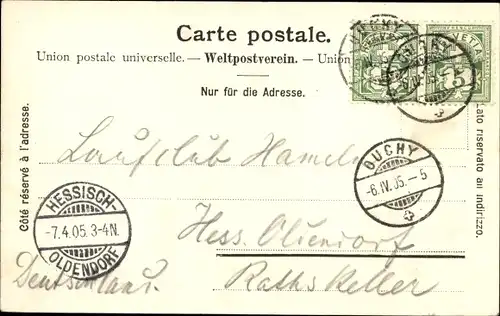 Carte postale.
Union postale universelle. — Weltpostverein. — Union
Nur für die Adresse.
Côté réservé à l'adresse.
lato riservato au indirizzo.
OUCHY
-6.IV.05.-5
HESSISCH-
-7.4.05.3-4N.
OLDENDORF
Laufclub Hameln
Hess. Oldendorf
Deutschland.
Rathskeller